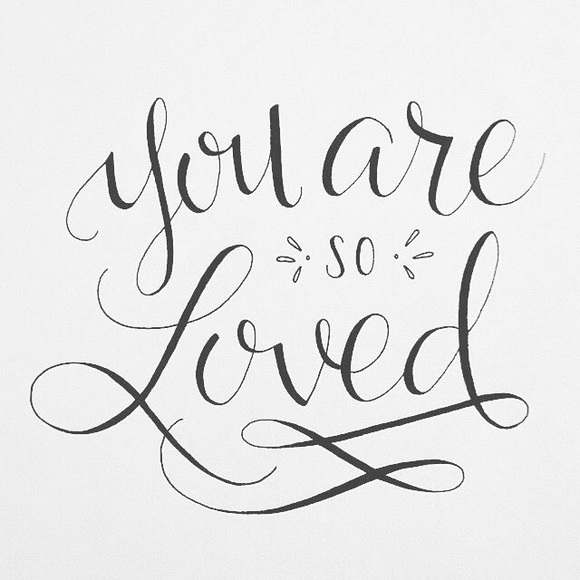 you are
so
Loved